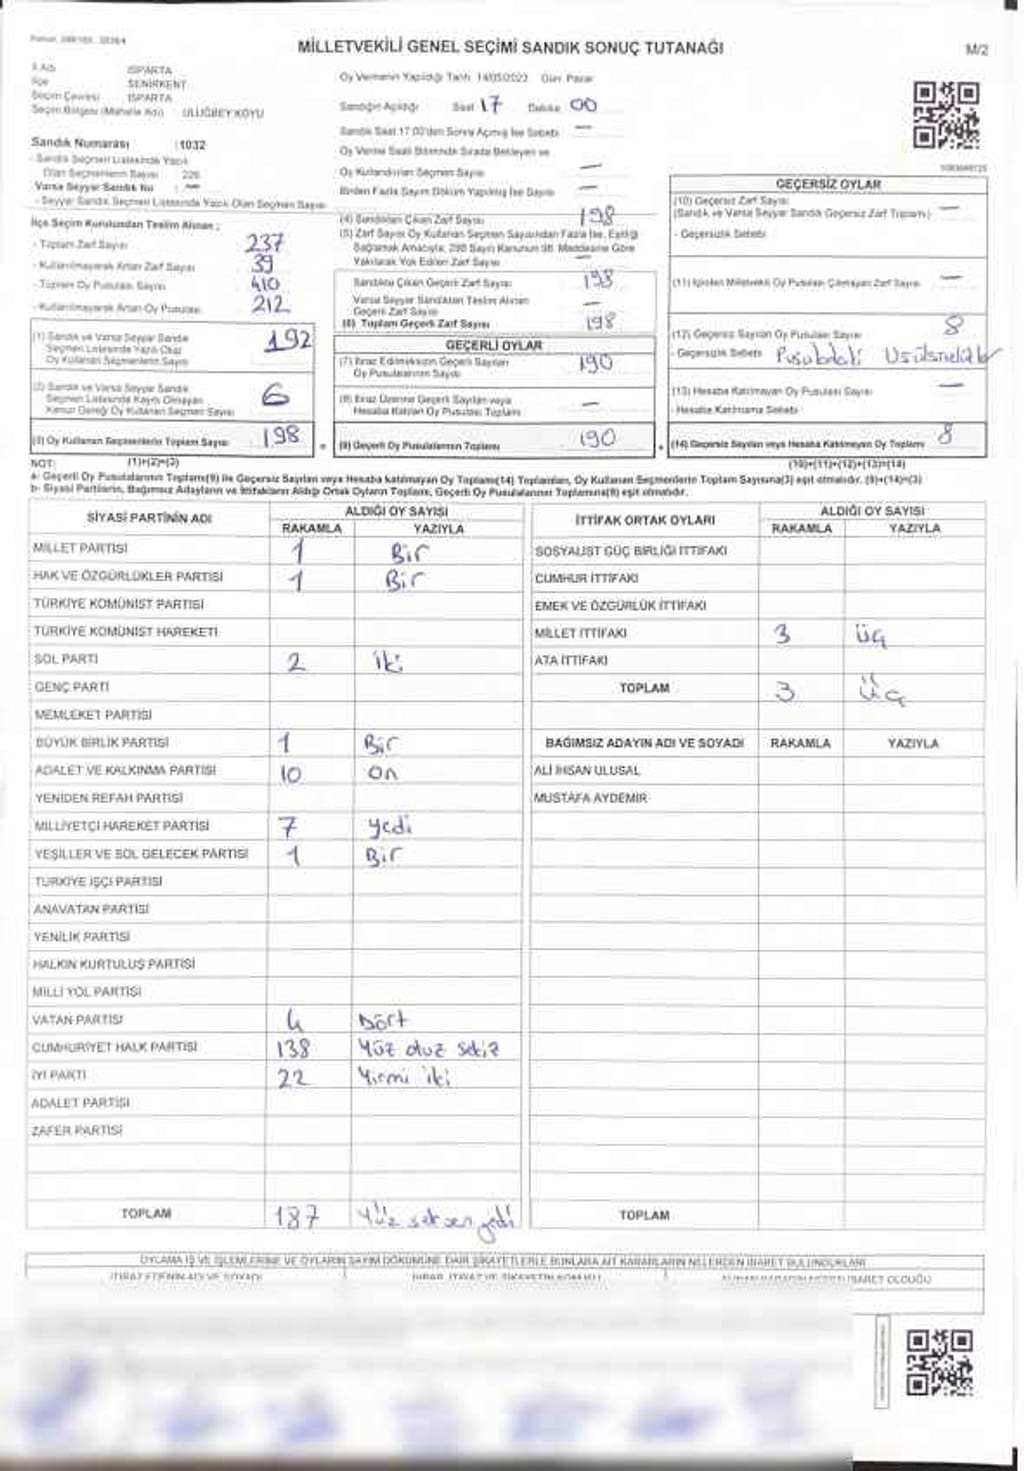 MİLLETVEKİLİ GENEL SEÇİMİ SANDIK SONUÇ TUTANAĞI
M/2
İl Adı ISPARTA
İlçe SENİRKENT
Seçim Çevresi ISPARTA
Seçim Bölgesi (Mahalle Adı) : ULUĞBEY KÖYÜ
Sandık Numarası :1032
- Sandık Seçmen Listesinde Yazılı
Olan Seçmenlerin Sayısı 226
Varsa Seyyar Sandık No : —
- Seyyar Sandık Seçmen Listesinde Yazılı Olan Seçmen Sayısı
İlçe Seçim Kurulundan Teslim Alınan ;
- Toplam Zarf Sayısı 237
- Kullanılmayarak Artan Zarf Sayısı 39
- Toplam Oy Pusulası Sayısı 410
- Kullanılmayarak Artan Oy Pusulası 212
(1) Sandık ve Varsa Seyyar Sandık
Seçmen Listesinde Yazılı Olup
Oy Kullanan Seçmenlerin Sayısı 192
(2) Sandık ve Varsa Seyyar Sandık
Seçmen Listesinde Kayıtlı Olmayan
Kanun Gereği Oy Kullanan Seçmen Sayısı 6
(3) Oy Kullanan Seçmenlerin Toplam Sayısı 198
Oy Vermenin Yapıldığı Tarih 14/05/2023 Gün Pazar
Sandığın Açıldığı Saat 17 Dakika 00
Sandık Saat 17:00'den Sonra Açılmış İse Sebebi —
Oy Verme Saati Bitiminde Sırada Bekleyen ve
Oy Kullandırılan Seçmen Sayısı —
Birden Fazla Sayım Döküm Yapılmış İse Sayısı —
(4) Sandıktan Çıkan Zarf Sayısı 198
(5) Zarf Sayısı Oy Kullanan Seçmen Sayısından Fazla İse, Eşitliği
Sağlamak Amacıyla; 298 Sayılı Kanunun 98. Maddesine Göre
Yakılarak Yok Edilen Zarf Sayısı —
Sandıktan Çıkan Geçerli Zarf Sayısı 198
Varsa Seyyar Sandıktan Teslim Alınan
Geçerli Zarf Sayısı —
(6) Toplam Geçerli Zarf Sayısı 198
GEÇERLİ OYLAR
(7) İtiraz Edilmeksizin Geçerli Sayılan
Oy Pusulalarının Sayısı 190
(8) İtiraz Üzerine Geçerli Sayılan veya
Hesaba Katılan Oy Pusulası Toplamı —
(9) Geçerli Oy Pusulalarının Toplamı 190
GEÇERSİZ OYLAR
(10) Geçersiz Zarf Sayısı
(Sandık ve Varsa Seyyar Sandık Geçersiz Zarf Toplamı) —
- Geçersizlik Sebebi
(11) İçinden Milletvekili Oy Pusulası Çıkmayan Zarf Sayısı —
(12) Geçersiz Sayılan Oy Pusulası Sayısı 8
- Geçersizlik Sebebi
(13) Hesaba Katılmayan Oy Pusulası Sayısı —
- Hesaba Katılmama Sebebi
(14) Geçersiz Sayılan veya Hesaba Katılmayan Oy Toplamı 8
NOT: (1)+(2)=(3) (10)+(11)+(12)+(13)=(14)
a- Geçerli Oy Pusulalarının Toplamı(9) ile Geçersiz Sayılan veya Hesaba katılmayan Oy Toplamı(14) Toplamları, Oy Kullanan Seçmenlerin Toplam Sayısına(3) eşit olmalıdır. (9)+(14)=(3)
b- Siyasi Partilerin, Bağımsız Adayların ve İttifakların Aldığı Ortak Oyların Toplamı, Geçerli Oy Pusulalarının Toplamına(9) eşit olmalıdır.
SİYASİ PARTİNİN ADI ALDIĞI OY SAYISI
RAKAMLA YAZIYLA
MİLLET PARTİSİ 1 Bir
HAK VE ÖZGÜRLÜKLER PARTİSİ 1 Bir
TÜRKİYE KOMÜNİST PARTİSİ
TÜRKİYE KOMÜNİST HAREKETİ
SOL PARTİ 2 iki
GENÇ PARTİ
MEMLEKET PARTİSİ
BÜYÜK BİRLİK PARTİSİ 1 Bir
ADALET VE KALKINMA PARTİSİ 10 on
YENİDEN REFAH PARTİSİ
MİLLİYETÇİ HAREKET PARTİSİ 7 yedi
YEŞİLLER VE SOL GELECEK PARTİSİ 1 Bir
TÜRKİYE İŞÇİ PARTİSİ
ANAVATAN PARTİSİ
YENİLİK PARTİSİ
HALKIN KURTULUŞ PARTİSİ
MİLLİ YOL PARTİSİ
VATAN PARTİSİ 4 Dört
CUMHURİYET HALK PARTİSİ 138 Yüz otuz sekiz
İYİ PARTİ 22 Yirmi iki
ADALET PARTİSİ
ZAFER PARTİSİ
TOPLAM 187 Yüz seksen yedi
İTTİFAK ORTAK OYLARI ALDIĞI OY SAYISI
RAKAMLA YAZIYLA
SOSYALİST GÜÇ BİRLİĞİ İTTİFAKI
CUMHUR İTTİFAKI
EMEK VE ÖZGÜRLÜK İTTİFAKI
MİLLET İTTİFAKI 3 üç
ATA İTTİFAKI
TOPLAM 3 üç
BAĞIMSIZ ADAYIN ADI VE SOYADI RAKAMLA YAZIYLA
ALİ İHSAN ULUSAL
MUSTAFA AYDEMİR
TOPLAM
OYLAMA İŞ VE İŞLEMLERİNE VE OYLARIN SAYIM DÖKÜMÜNE DAİR ŞİKAYETLERLE BUNLARA AİT KARARLARIN NELERDEN İBARET BULUNDUKLARI
İTİRAZ EDENİN ADI VE SOYADI
İBARET OLDUĞU